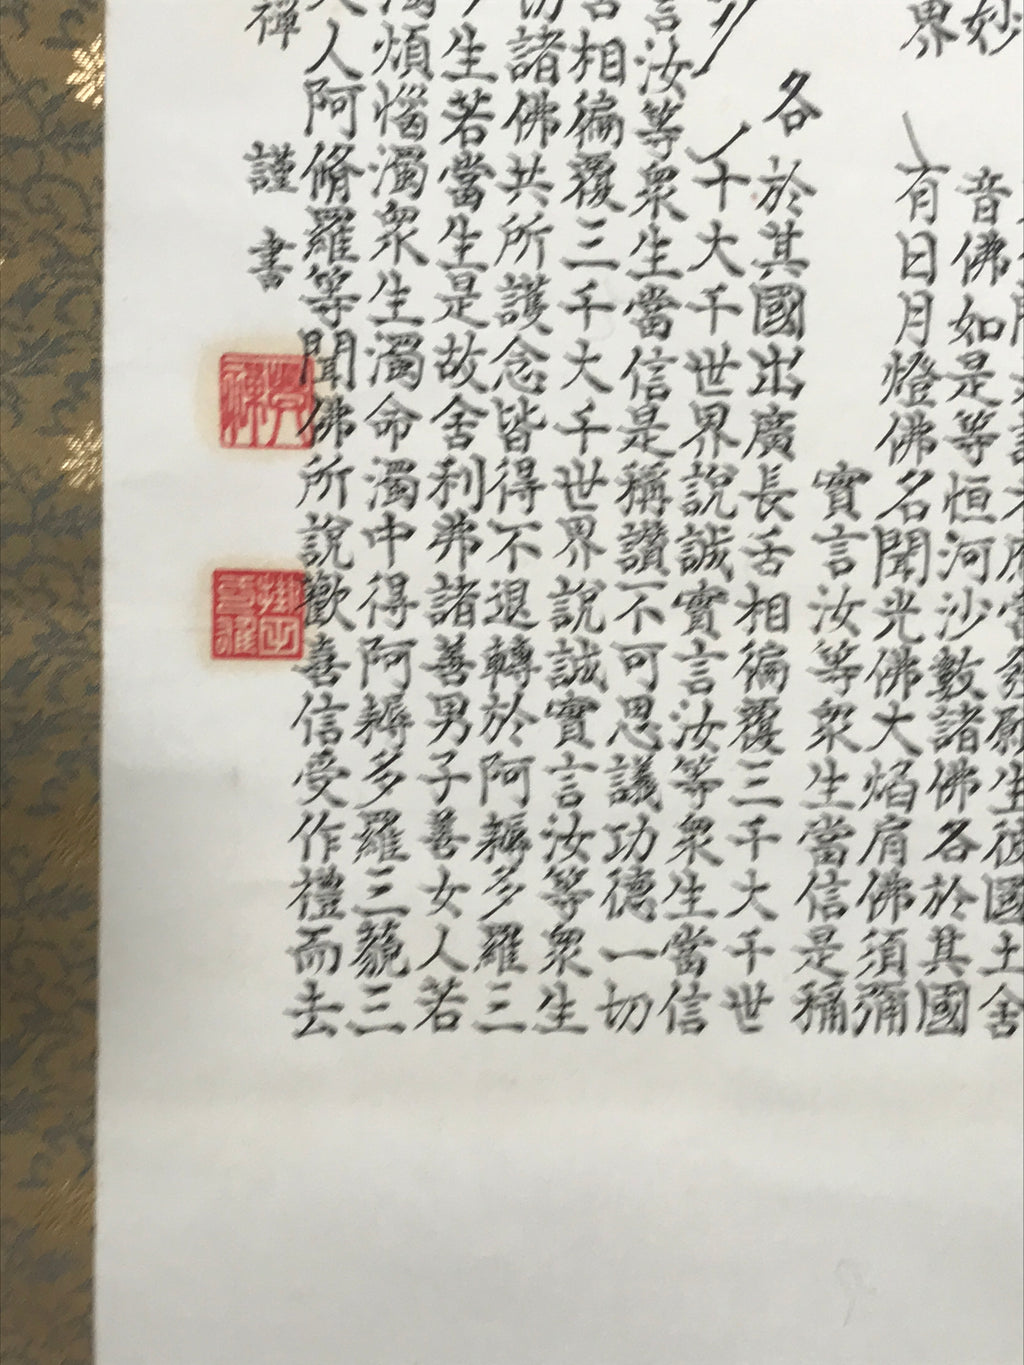 妙音佛如是等恒河沙數諸佛各於其國
界
有日月燈佛名聞光佛大焰肩佛須彌
實言汝等衆生當信是稱
各於其國出廣長舌相徧覆三千大千世
十大千世界說誠實言汝等衆生當信
言汝等衆生當信是稱讚不可思議功德一切
相徧覆三千大千世界說誠實言汝等衆生
諸佛共所護念皆得不退轉於阿耨多羅三
生若當生是故舍利弗諸善男子善女人若
濁煩惱濁衆生濁命濁中得阿耨多羅三藐三
人阿脩羅等聞佛所說歡喜信受作禮而去
禪 謹書